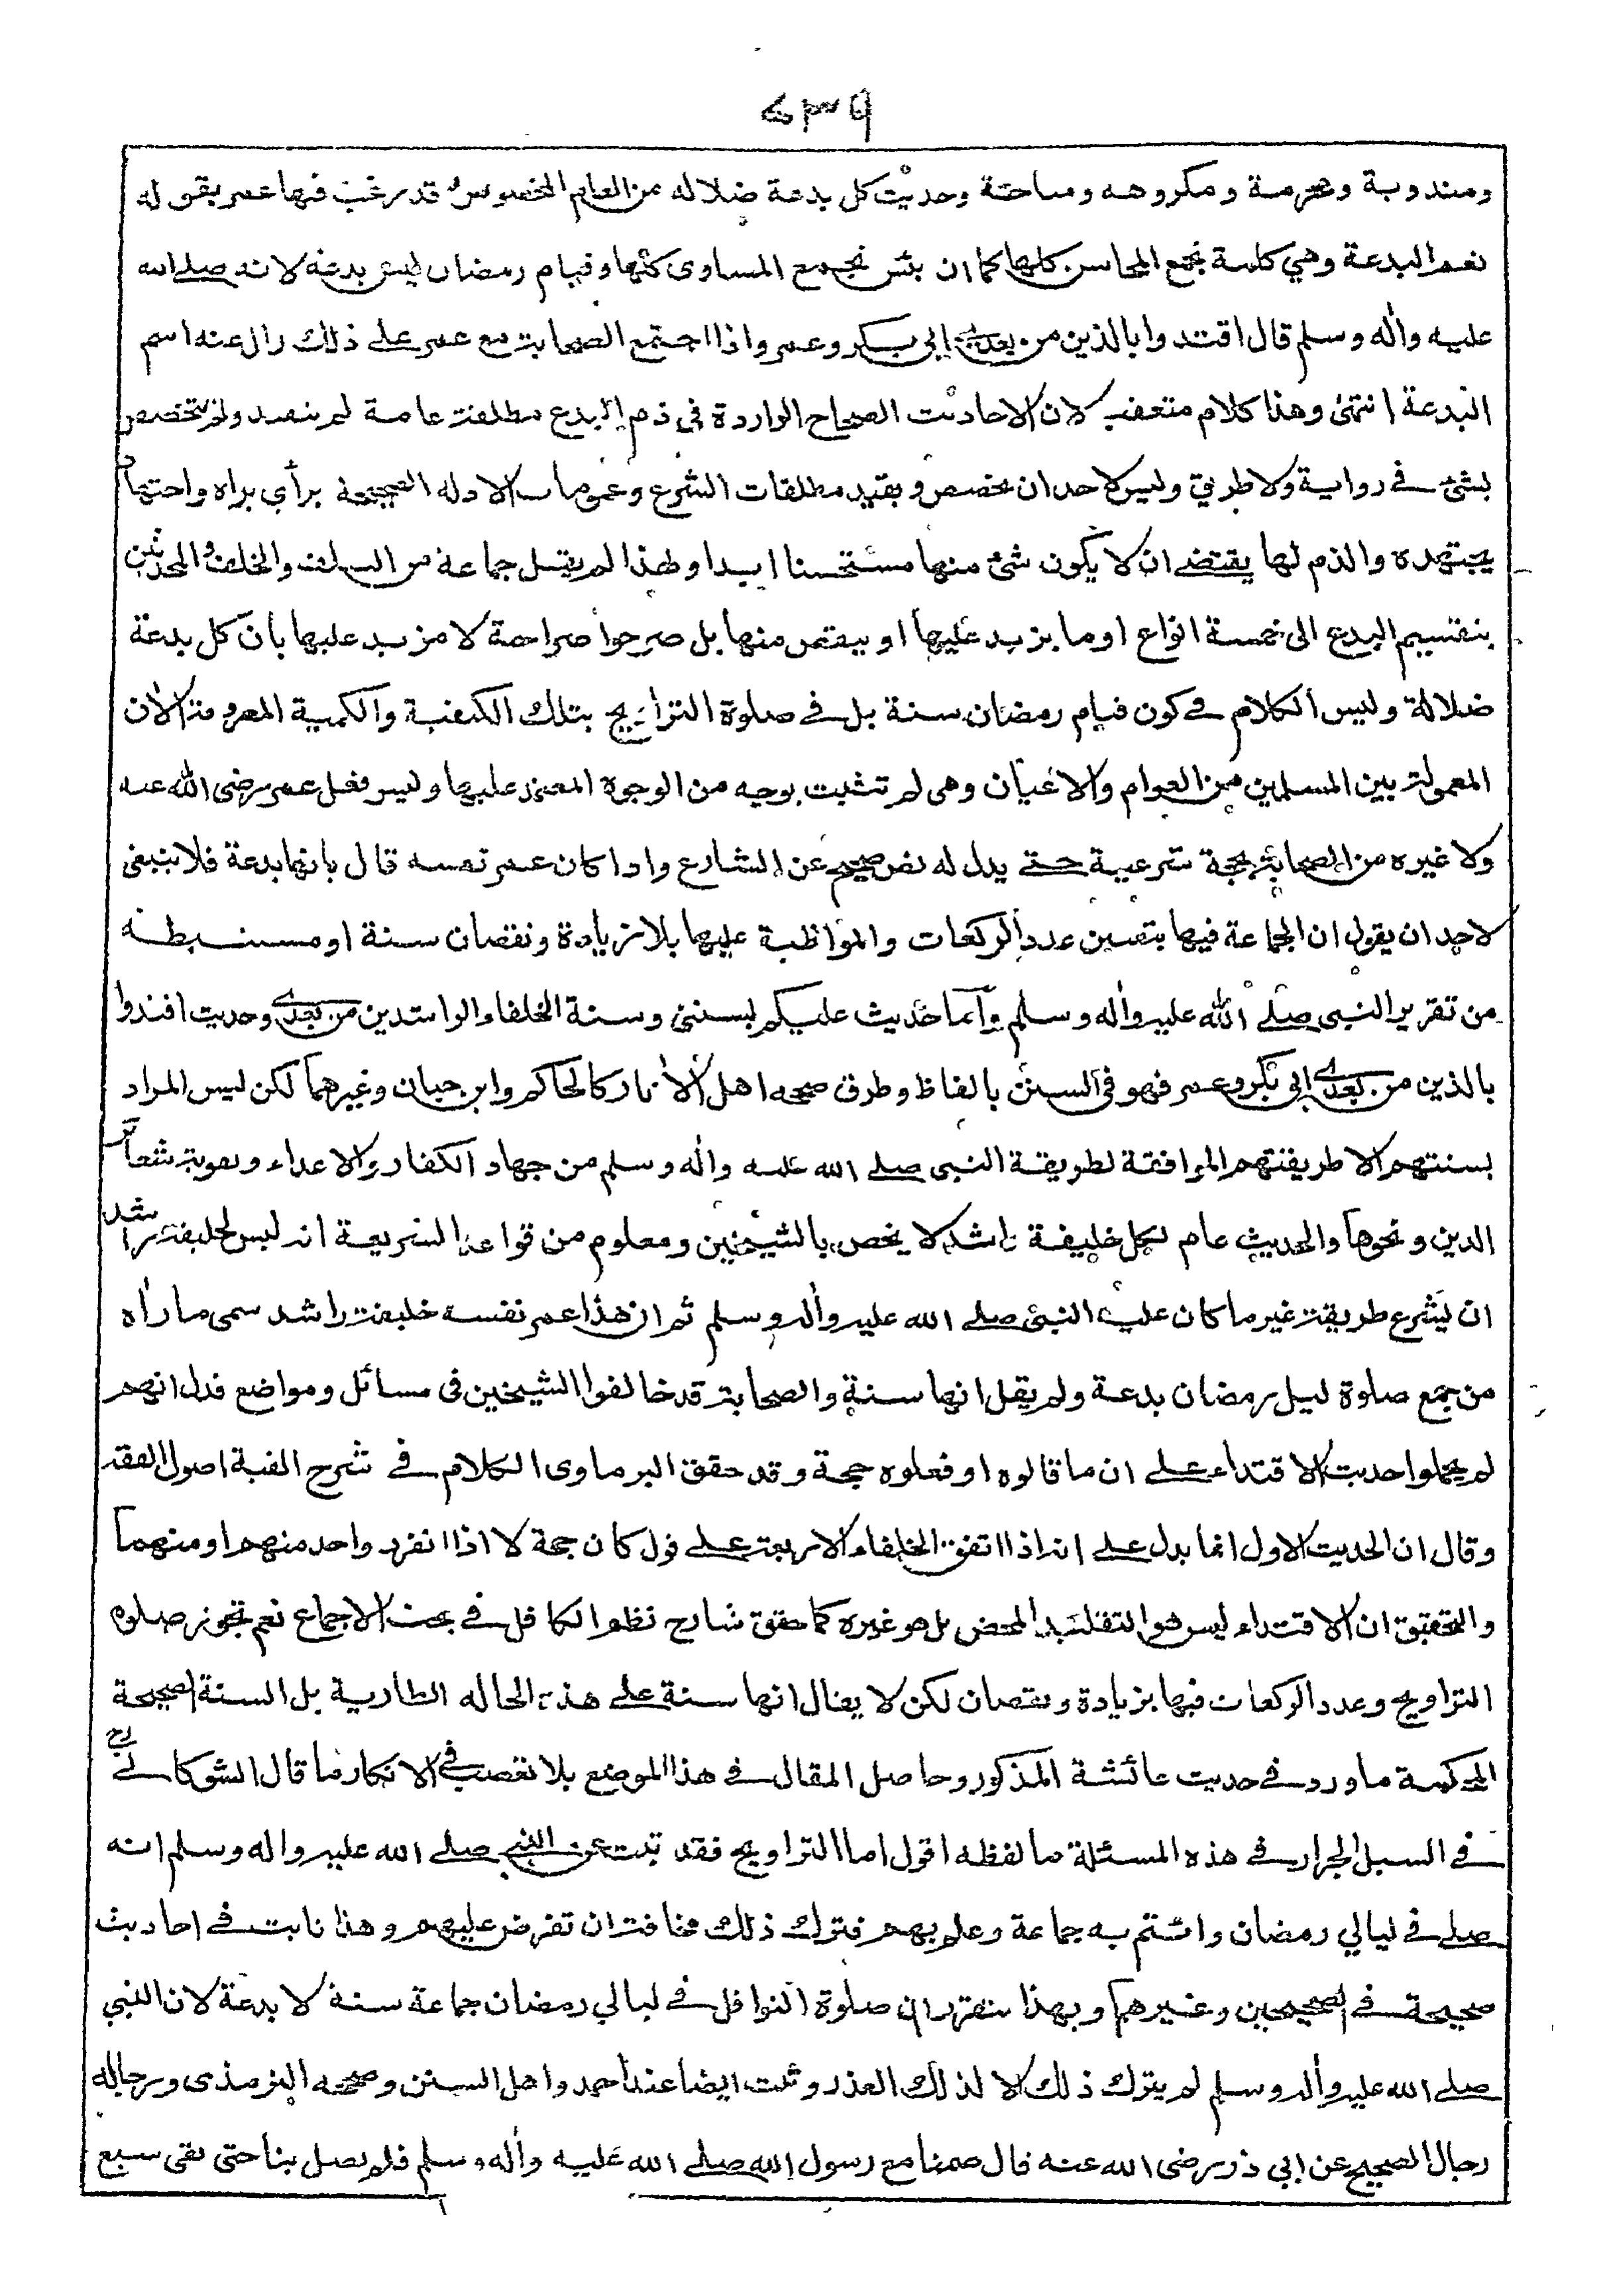 ومندوبة ومحرمة ومكروهه ومباحة وحديث كل بدعة ضلاله من العام المخصوص قد رغب فيها عمر بقوله
نعم البدعة وهي كلمة تجمع المحاسن كلها كما ان بئس تجمع المساوى كلها وقيام رمضان ليس بدعة لانه صلى الله
عليه واٰله وسلم قال اقتدوا بالذين من بعدى ابى بكر وعمر واذا اجتمع الصحابة مع عمر على ذلك زال عنه اسم
البدعة انتهى وهذا كلام متعقب لان الاحاديث الصحاح الواردة في ذم البدع مطلقة عامة لم تقيد ولم تخصص
بشئ في رواية ولا طريق وليس لاحد ان يخصص ويقيد مطلقات الشرع وعمومات الادله الصحيحة برأي يراه واجتهاد
يجتهده والذم لها يقتضى ان لا يكون شئ منها مستحسنا ابدا ولهذا لم يقل جماعة من السلف والخلف والمحدثين
بتقسيم البدع الى خمسة انواع او ما يزيد عليها او ينقص منها بل صرحوا صراحة لا مزيد عليها بان كل بدعة
ضلالة وليس الكلام في كون قيام رمضان سنة بل في صلوة التراويح بتلك الكيفية والكمية المعروفة الاٰن
المعمولة بين المسلمين من العوام والاعيان وهى لم تثبت بوجه من الوجوه المعتمد عليها وليس فعل عمر رضى الله عنه
ولا غيره من الصحابة بحجة شرعية حتى يدل له نص صحيح عن الشارع واذا كان عمر نفسه قال بانها بدعة فلا ينبغى
لاحد ان يقول ان الجماعة فيها بتعيين عدد الركعات والمواظبة عليها بلا زيادة ونقصان سنة او مستنبطة
من تقرير النبى صلى الله عليه واٰله وسلم واما حديث عليكم بسنتى وسنة الخلفاء الراشدين من بعدى وحديث اقتدوا
بالذين من بعدى ابى بكر وعمر فهو في السنن بالفاظ وطرق صححه اهل الاٰثار كالحاكم وابن حبان وغيرهما لكن ليس المراد
بسنتهم الا طريقتهم الموافقة لطريقة النبى صلى الله عليه واٰله وسلم من جهاد الكفار والاعداء وتقوية شعائر
الدين ونحوها والحديث عام لكل خليفة راشد لا يخص بالشيخين ومعلوم من قواعد الشريعة انه ليس لخليفة راشد
ان يشرع طريقة غير ما كان عليه النبى صلى الله عليه واٰله وسلم ثم ان هذا عمر نفسه خليفة راشد سمى ما راٰه
من جمع صلوة ليل رمضان بدعة ولم يقل انها سنة والصحابة قد خالفوا الشيخين في مسائل ومواضع فدل انهم
لم يحملوا حديث الاقتداء على ان ما قالوه او فعلوه حجة وقد حقق البرماوى الكلام في شرح الفية اصول الفقه
وقال ان الحديث الاول انما يدل على انه اذا اتفق الخلفاء الاربعة على قول كان حجة لا اذا انفرد واحد منهم او منهما
والتحقيق ان الاقتداء ليس هو التقليد المحض بل هو غيره كما حقق شارح نظم الكافل في بحث الاجماع نعم تجوز صلوة
التراويح وعدد الركعات فيها بزيادة ونقصان لكن لا يقال انها سنة على هذه الحاله الطارية بل السنة الصحيحة
المحكمة ما ورد في حديث عائشة المذكور وحاصل المقال في هذا الموضع بلا تعصب في الانكار ما قال الشوكانى رح
في السيل الجرار في هذه المسئلة ما لفظه اقول اما التراويح فقد ثبت عن النبى صلى الله عليه واله وسلم انه
صلى في ليالي رمضان وائتم به جماعة وعلم بهم فترك ذلك مخافة ان تفرض عليهم وهذا ثابت في احاديث
صحيحة في الصحيحين وغيرهما وبهذا يتقرر ان صلوة النوافل في ليالي رمضان جماعة سنة لا بدعة لان النبي
صلى الله عليه واٰله وسلم لم يترك ذلك الا لذلك العذر وثبت ايضا عند احمد واهل السنن وصححه الترمذى ورجاله
رجال الصحيح عن ابي ذر رضى الله عنه قال صمنا مع رسول الله صلى الله عليه واٰله وسلم فلم يصل بنا حتى بقى سبع